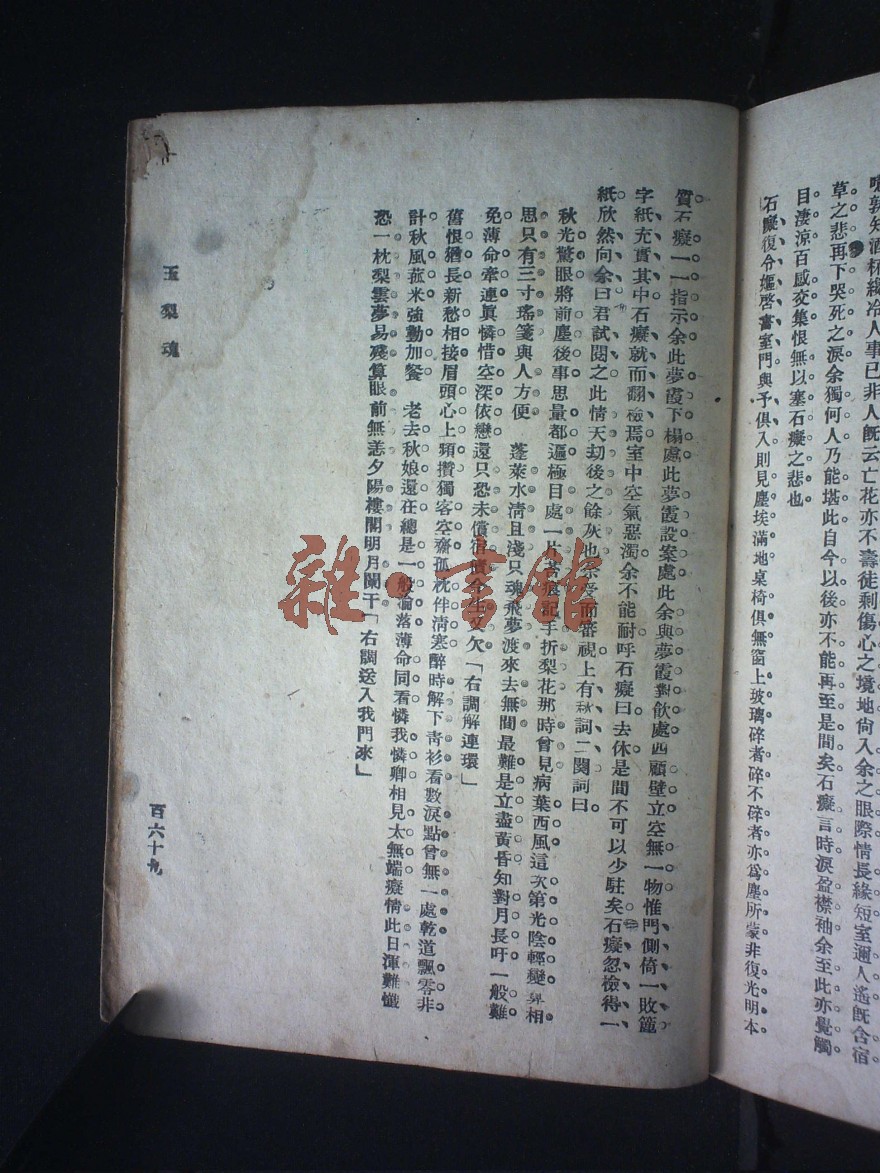 噫孰知酒杯纔冷人事已非人旣云亡花亦不壽徒剩傷心之境地尙入余之眼際情長緣短室邇人遙旣含宿
草之悲再下哭死之淚余獨何人乃能堪此自今以後亦不能再至是間矣石癡言時淚盈襟袖余至此亦覺觸
目淒涼百感交集恨無以塞石癡之悲也
石癡復令嫗啓書室門與予俱入則見塵埃滿地桌椅俱無窗上玻璃碎者碎不碎者亦爲塵所蒙非復光明本
質石癡一一指示余此夢霞下榻處此夢霞設案處此余與夢霞對飲處四顧壁立空無一物惟門側倚一敗簏
字紙充實其中石癡就而翻檢焉室中空氣惡濁余不能耐呼石癡曰去休是間不可以少駐矣石癡忽檢得一
紙欣然向余曰君試閱之此情天劫後之餘灰也余受而審視上有秋詞二闋詞曰
秋光驚眼將前塵後事思量都遍極目處一片苔痕記手折梨花那時曾見病葉西風這次第光陰輕變算相
思只有三寸瑤箋與人方便　蓬萊水淸且淺只魂飛夢渡來去無間最難是立盡黃昏知對月長吁一般難
免薄命牽連眞憐惜空深依戀還只恐未償宿債今生又欠「右調解連環」
舊恨猶長新愁相接眉頭心上頻攢獨客空齋孤枕伴淸寒醉時解下靑衫看數淚點曾無一處乾道飄零非
計秋風菰米強勸加餐　老去秋娘還在總是一般淪落薄命同看憐我憐卿相見太無端癡情此日渾難懺
恐一枕梨雲夢易殘算眼前無恙夕陽樓閣明月闌干「右調送入我門來」
玉梨魂
百六十九
雜·書館